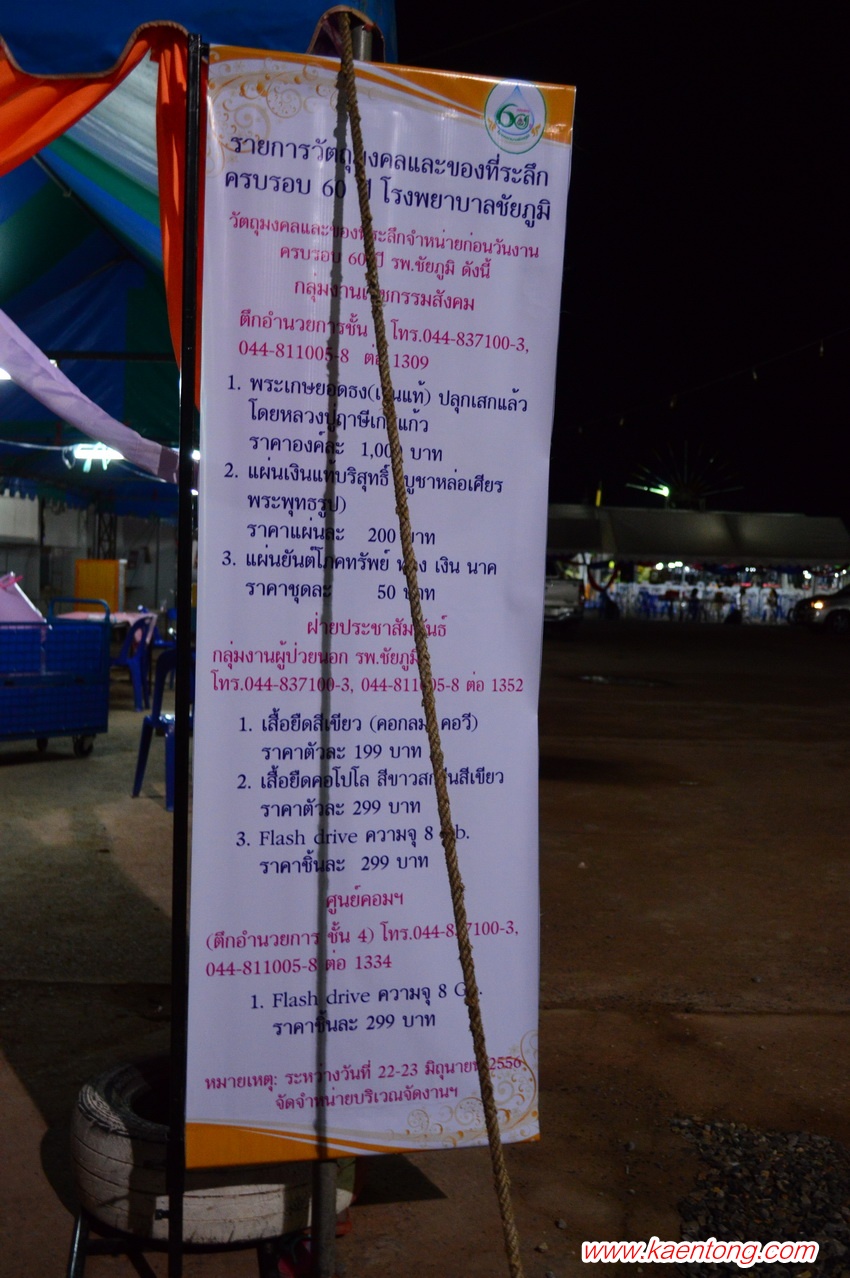 60
รายการวัตถุมงคลและของที่ระลึก
ครบรอบ 60 ปี โรงพยาบาลชัยภูมิ
วัตถุมงคลและของที่ระลึกจำหน่ายก่อนวันงาน
ครบรอบ 60 ปี รพ.ชัยภูมิ ดังนี้
กลุ่มงานเวชกรรมสังคม
ตึกอำนวยการชั้น โทร.044-837100-3,
044-811005-8 ต่อ 1309
1. พระเกษยอดธง(เงินแท้) ปลุกเสกแล้ว
โดยหลวงปู่ฤาษีเกตุแก้ว
ราคาองค์ละ 1,000 บาท
2. แผ่นเงินแท้บริสุทธิ์ (บูชาหล่อเศียร
พระพุทธรูป)
ราคาแผ่นละ 200 บาท
3. แผ่นยันต์โภคทรัพย์ ทอง เงิน นาค
ราคาชุดละ 50 บาท
ฝ่ายประชาสัมพันธ์
กลุ่มงานผู้ป่วยนอก รพ.ชัยภูมิ
โทร.044-837100-3, 044-811005-8 ต่อ 1352
1. เสื้อยืดสีเขียว (คอกลม คอวี)
ราคาตัวละ 199 บาท
2. เสื้อยืดคอโปโล สีขาวสกรีนสีเขียว
ราคาตัวละ 299 บาท
3. Flash drive ความจุ 8 Gb.
ราคาชิ้นละ 299 บาท
ศูนย์คอมฯ
(ตึกอำนวยการ ชั้น 4) โทร.044-837100-3,
044-811005-8 ต่อ 1334
1. Flash drive ความจุ 8 Gb.
ราคาชิ้นละ 299 บาท
หมายเหตุ: ระหว่างวันที่ 22-23 มิถุนายน 2556
จัดจำหน่ายบริเวณจัดงานฯ
www.kaentong.com